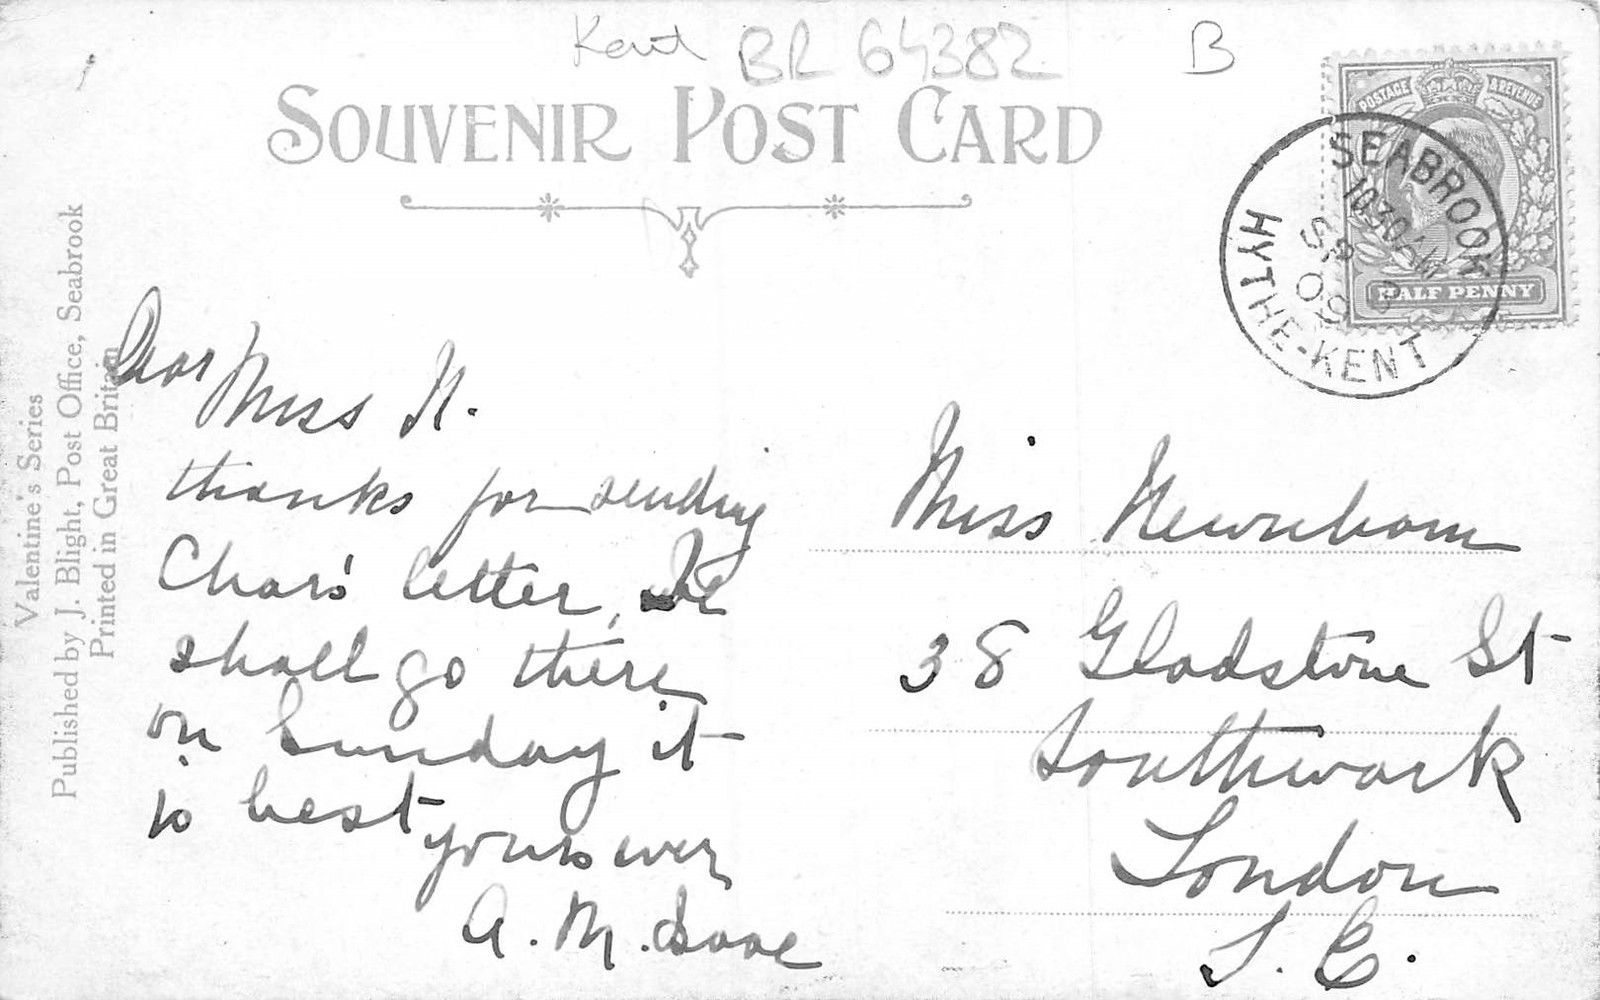 Kent BR 64382 B
SOUVENIR POST CARD
POSTAGE & REVENUE
HALF PENNY
SEABROOK
10.30 AM
SP 3
09
HYTHE-KENT
Valentine's Series
Published by J. Blight, Post Office, Seabrook
Printed in Great Britain
Dear
Miss N.
thanks for sending
Chas's letter, We
shall go there
on Sunday it
is best
yours ever
A. M.
Miss Newnham
38 Gladstone St
Southwark
London
S. E.